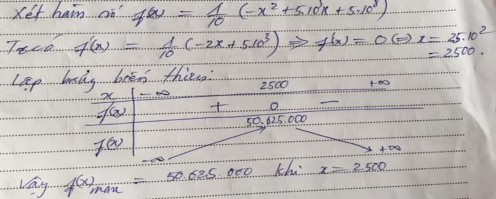 Xét hàm số f(x) = 1/10 (-x² + 5.10³x + 5.10⁸)
Ta có f'(x) = 1/10 (-2x + 5.10³) ⇒ f'(x) = 0 ⇔ x = 25.10²
= 2500.
Lập bảng biến thiên:
x -∞ 2500 +∞
f'(x) + 0 -
50.625.000
f(x)
-∞ +∞
Vậy f(x)max = 50.625.000 khi x = 2500